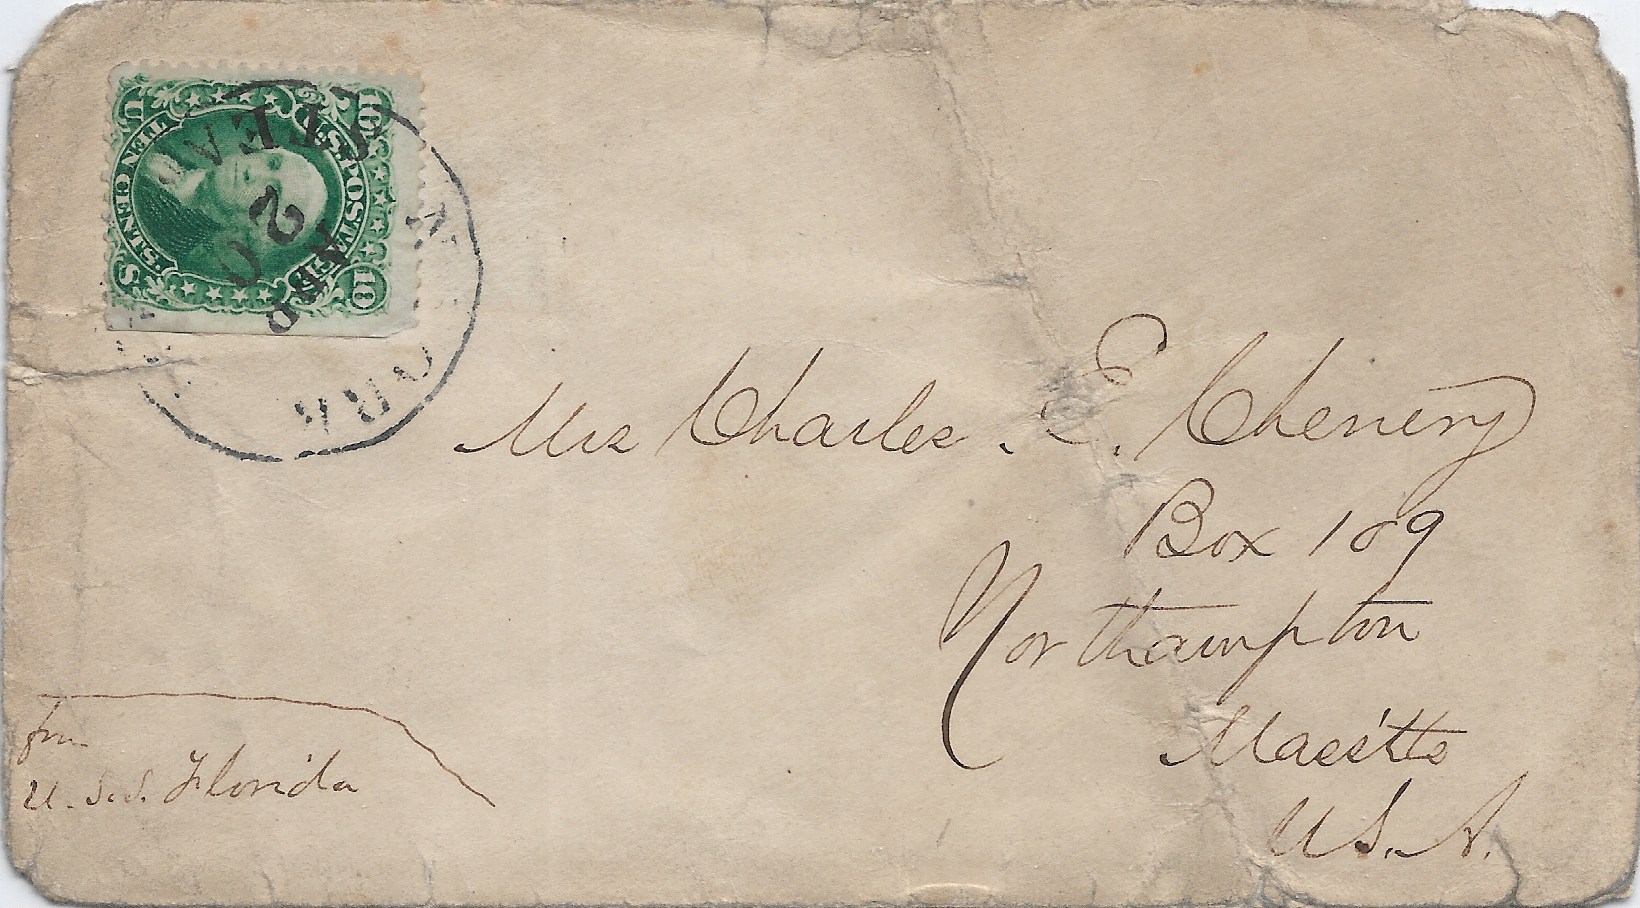 U.S. POSTAGE
TEN CENTS.
10 10
U S
STEA
APR
20
Mrs Charles. E. Chenery
Box 109
Northampton
Mass'tts
U.S.A.
from
U.S.S. Florida